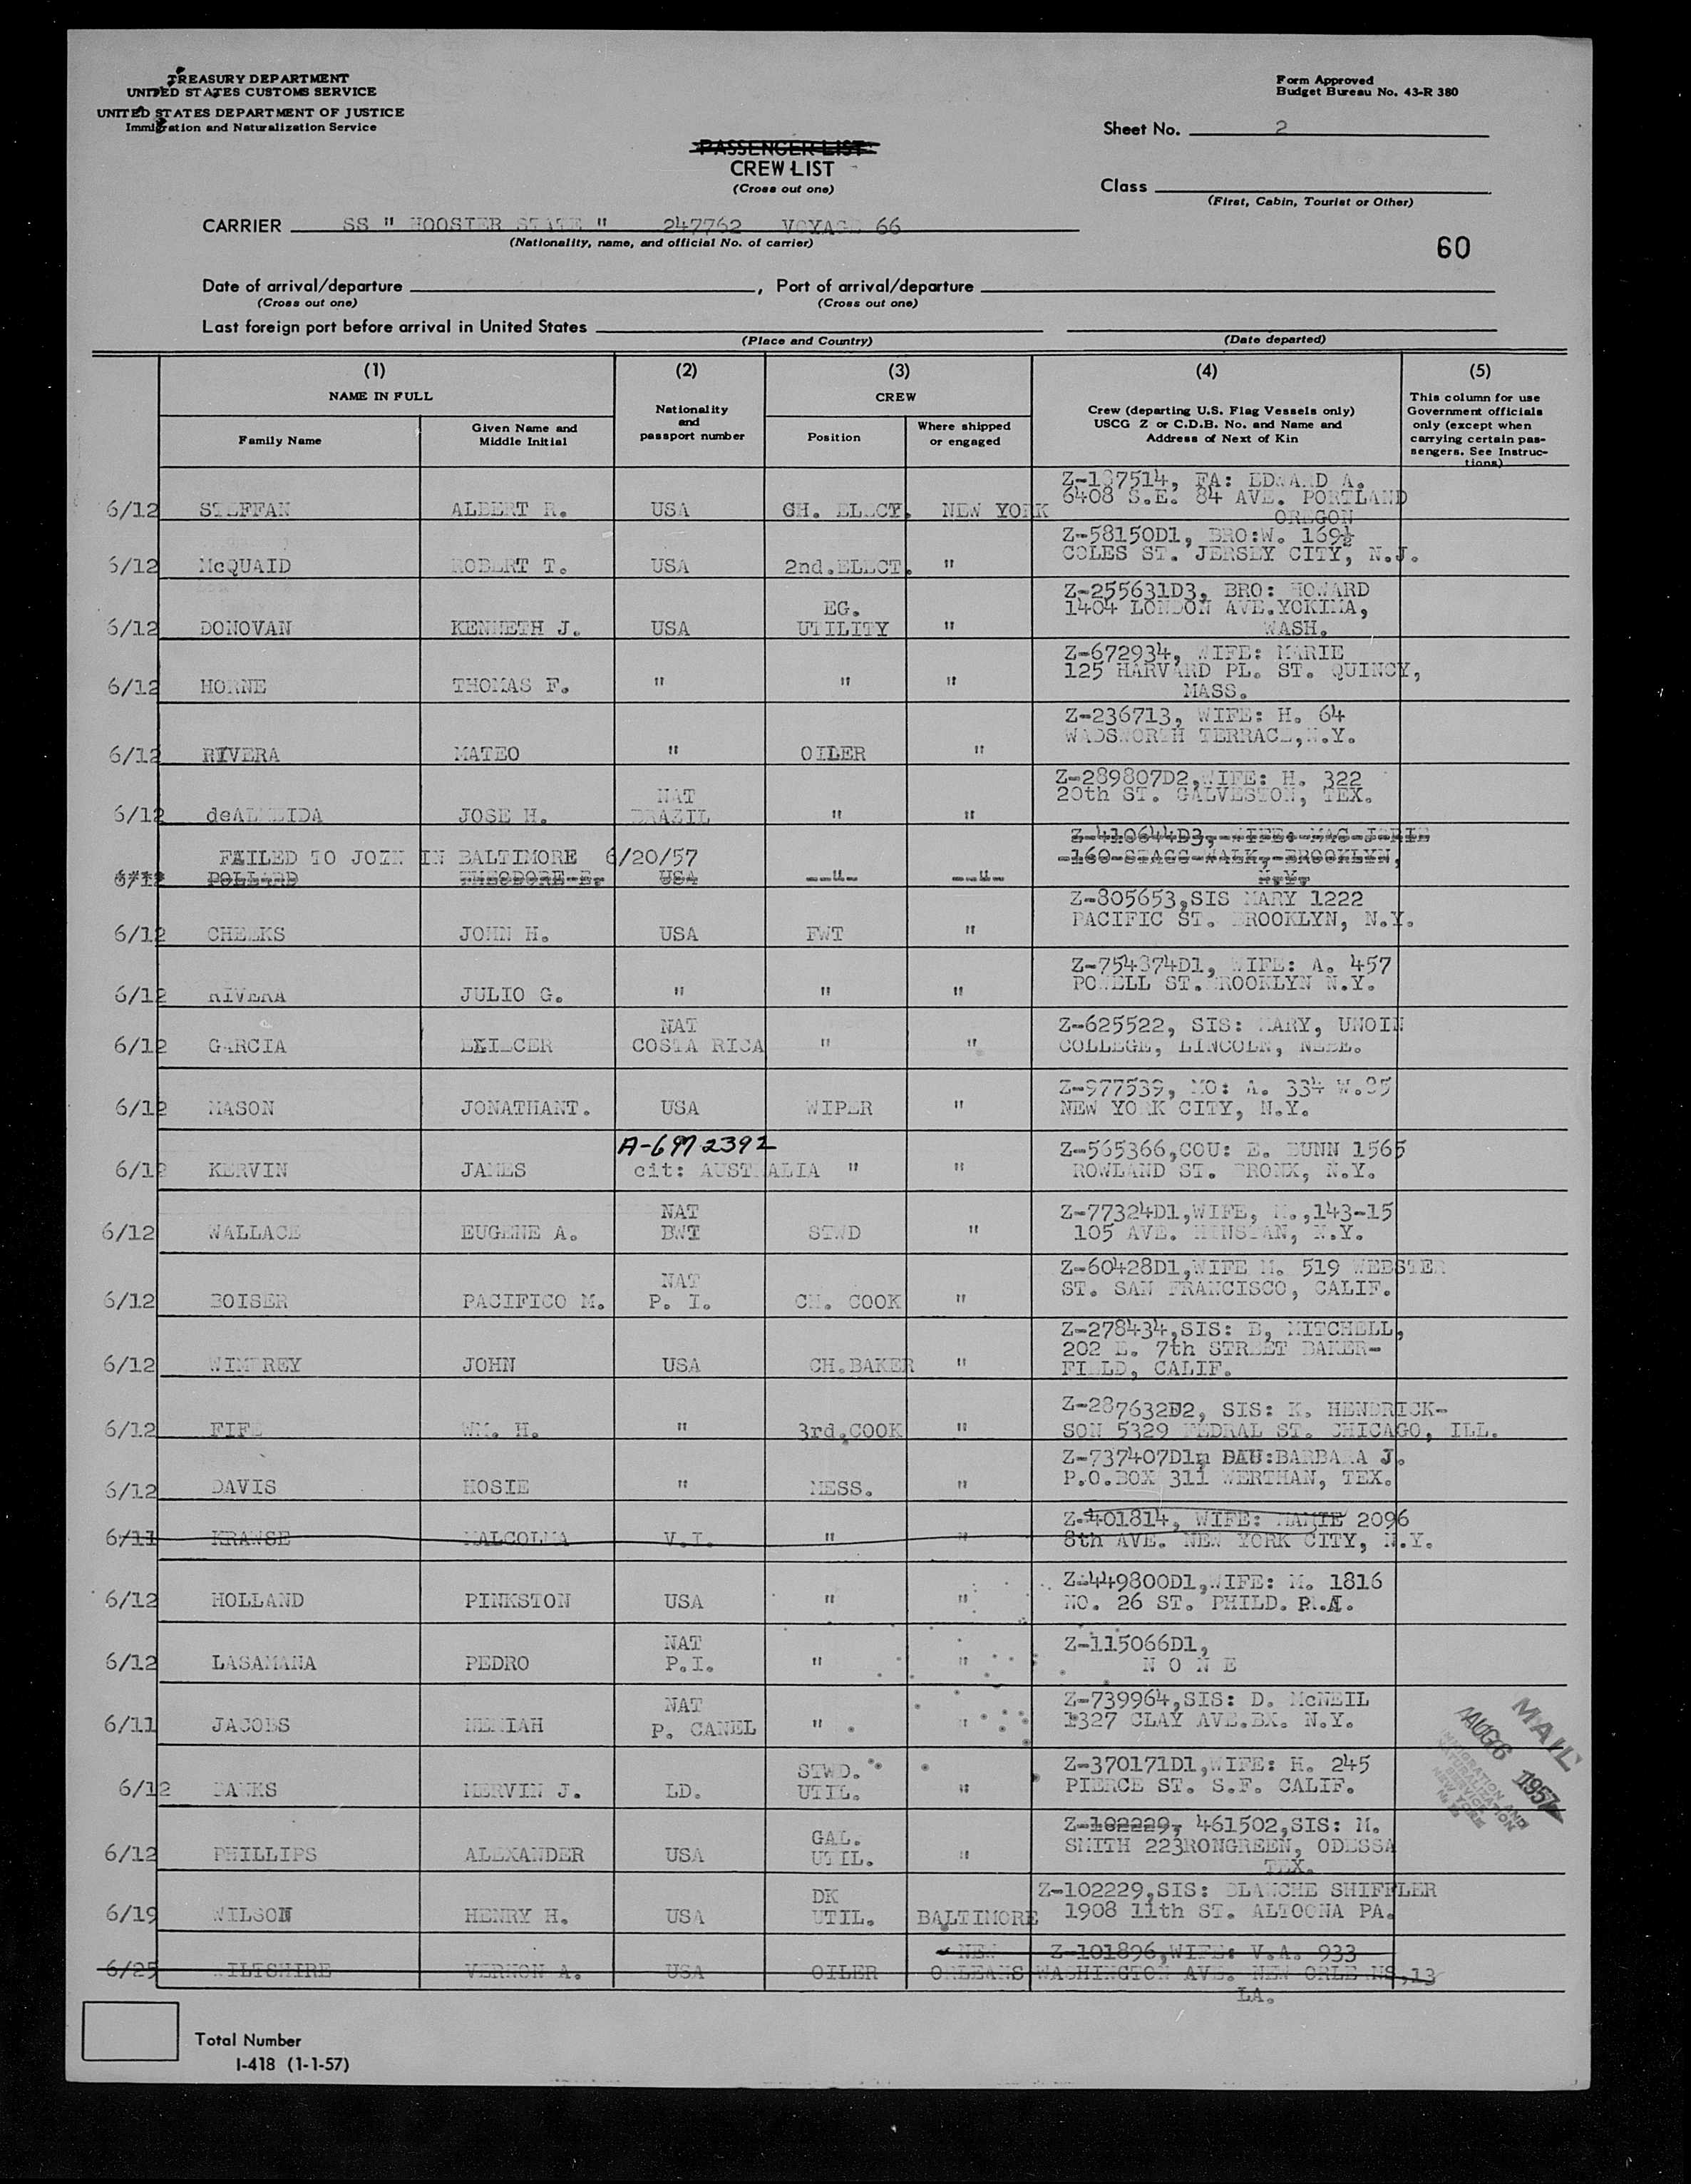 TREASURY DEPARTMENT
UNITED STATES CUSTOMS SERVICE
UNITED STATES DEPARTMENT OF JUSTICE
Immigration and Naturalization Service
Form Approved
Budget Bureau No. 43-R 380
Sheet No. 2
PASSENGER LIST
CREW LIST
(Cross out one)
Class
(First, Cabin, Tourist or Other)
CARRIER SS " HOOSIER STATE " 247762 VOYAGE 66
(Nationality, name, and official No. of carrier)
60
Date of arrival/departure , Port of arrival/departure
(Cross out one) (Cross out one)
Last foreign port before arrival in United States
(Place and Country) (Date departed)
(1) (2) (3) (4) (5)
NAME IN FULL
Family Name
Given Name and
Middle Initial
Nationality
and
passport number
CREW
Position
Where shipped
or engaged
Crew (departing U.S. Flag Vessels only)
USCG Z or C.D.B. No. and Name and
Address of Next of Kin
This column for use
Government officials
only (except when
carrying certain pas-
sengers. See Instruc-
tions)
Z-187514, FA: EDWARD A.
6408 S.E. 84 AVE. PORTLAND
6/12 STEFFAN ALBERT R. USA CH. ELECT. NEW YORK
OREGON
Z-58150D1, BRO:W. 169½
COLES ST. JERSEY CITY, N.J.
6/12 McQUAID ROBERT T. USA 2nd.ELECT. "
Z-255631D3, BRO: HOWARD
EG. 1404 LONDON AVE.YOKIMA,
6/12 DONOVAN KENNETH J. USA UTILITY " WASH.
Z-672934, WIFE: MARIE
125 HARVARD PL. ST. QUINCY,
6/12 HORNE THOMAS F. " " " MASS.
Z-236713, WIFE: H. 64
WADSWORTH TERRACE,N.Y.
6/12 RIVERA MATEO " OILER "
Z-289807D2,WIFE: H. 322
NAT 20th ST. GALVESTON, TEX.
6/12 deALMEIDA JOSE H. BRAZIL " "
Z-410644D3,-WIFE:-MAC-JORIE
FAILED TO JOIN IN BALTIMORE 6/20/57 -160-STAGG-WALK,-BROOKLYN,
6/12 POLLARD THEODORE-E. USA --"- --"- N.Y.
Z-805653,SIS MARY 1222
PACIFIC ST. BROOKLYN, N.Y.
6/12 CHEEKS JOHN H. USA FWT "
Z-754874D1, WIFE: A. 457
POWELL ST.BROOKLYN N.Y.
6/12 RIVERA JULIO G. " " "
NAT Z-625522, SIS: MARY, UNOIN
6/12 GARCIA COSTA RICA " " COLLEGE, LINCOLN, NEBE.
Z-977539, MO: A. 334 W.85
6/12 MASON JONATHANT. USA WIPER " NEW YORK CITY, N.Y.
A-6972392
Z-565366,COU: E. DUNN 1565
6/12 KERVIN JAMES cit: AUSTRALIA " " ROWLAND ST. BRONX, N.Y.
NAT Z-77324D1,WIFE, M.,143-15
6/12 WALLACE EUGENE A. BWT STWD " 105 AVE. N.Y.
NAT Z-60428D1,WIFE M. 519 WEBSTER
ST. SAN FRANCISCO, CALIF.
6/12 BOISER PACIFICO M. P. I. CH. COOK "
Z-278434,SIS: B, MITCHELL,
202 E. 7th STREET BAKER-
6/12 WIMFREY JOHN USA CH.BAKER " FIELD, CALIF.
Z-287632D2, SIS: K. HENDRICK-
6/12 FIFE WM. H. " 3rd.COOK " SON 5329 FEDRAL ST. CHICAGO, ILL.
Z-737407D1m DAU:BARBARA J.
6/12 DAVIS HOSIE " MESS. " P.O.BOX 311 WERTHAN, TEX.
Z-401814, WIFE: MAMIE 2096
6/11 KRAWSE MALCOLMA V.I. " " 8th AVE. NEW YORK CITY, N.Y.
Z-449800D1,WIFE: M. 1816
6/12 HOLLAND PINKSTON USA " " NO. 26 ST. PHILD. P.A.
NAT Z-115066D1,
6/12 LASAMANA PEDRO P.I. " " N O N E
NAT Z-739964,SIS: D. McNEIL
6/11 JACOBS NEMIAH P. CANEL " " 1327 CLAY AVE.BX. N.Y.
STWD. Z-370171D1,WIFE: H. 245
6/12 BANKS MERVIN J. LD. UTIL. " PIERCE ST. S.F. CALIF.
Z-102229, 461502,SIS: M.
GAL. SMITH 223RONGREEN, ODESSA
6/12 PHILLIPS ALEXANDER USA UTIL. " TEX.
DK Z-102229,SIS: BLANCHE SHIFFLER
6/19 WILSON HENRY H. USA UTIL. BALTIMORE 1908 11th ST. ALTOONA PA.
NEW Z-101896,WIFE: V.A. 933
6/25 WILTSHIRE VERNON A. USA OILER ORLEANS WASHINGTON AVE. NEW ORLEANS,13
LA.
MAIL
AUG 6 1957
IMMIGRATION AND
NATURALIZATION
SERVICE
NEW YORK
Total Number
I-418 (1-1-57)